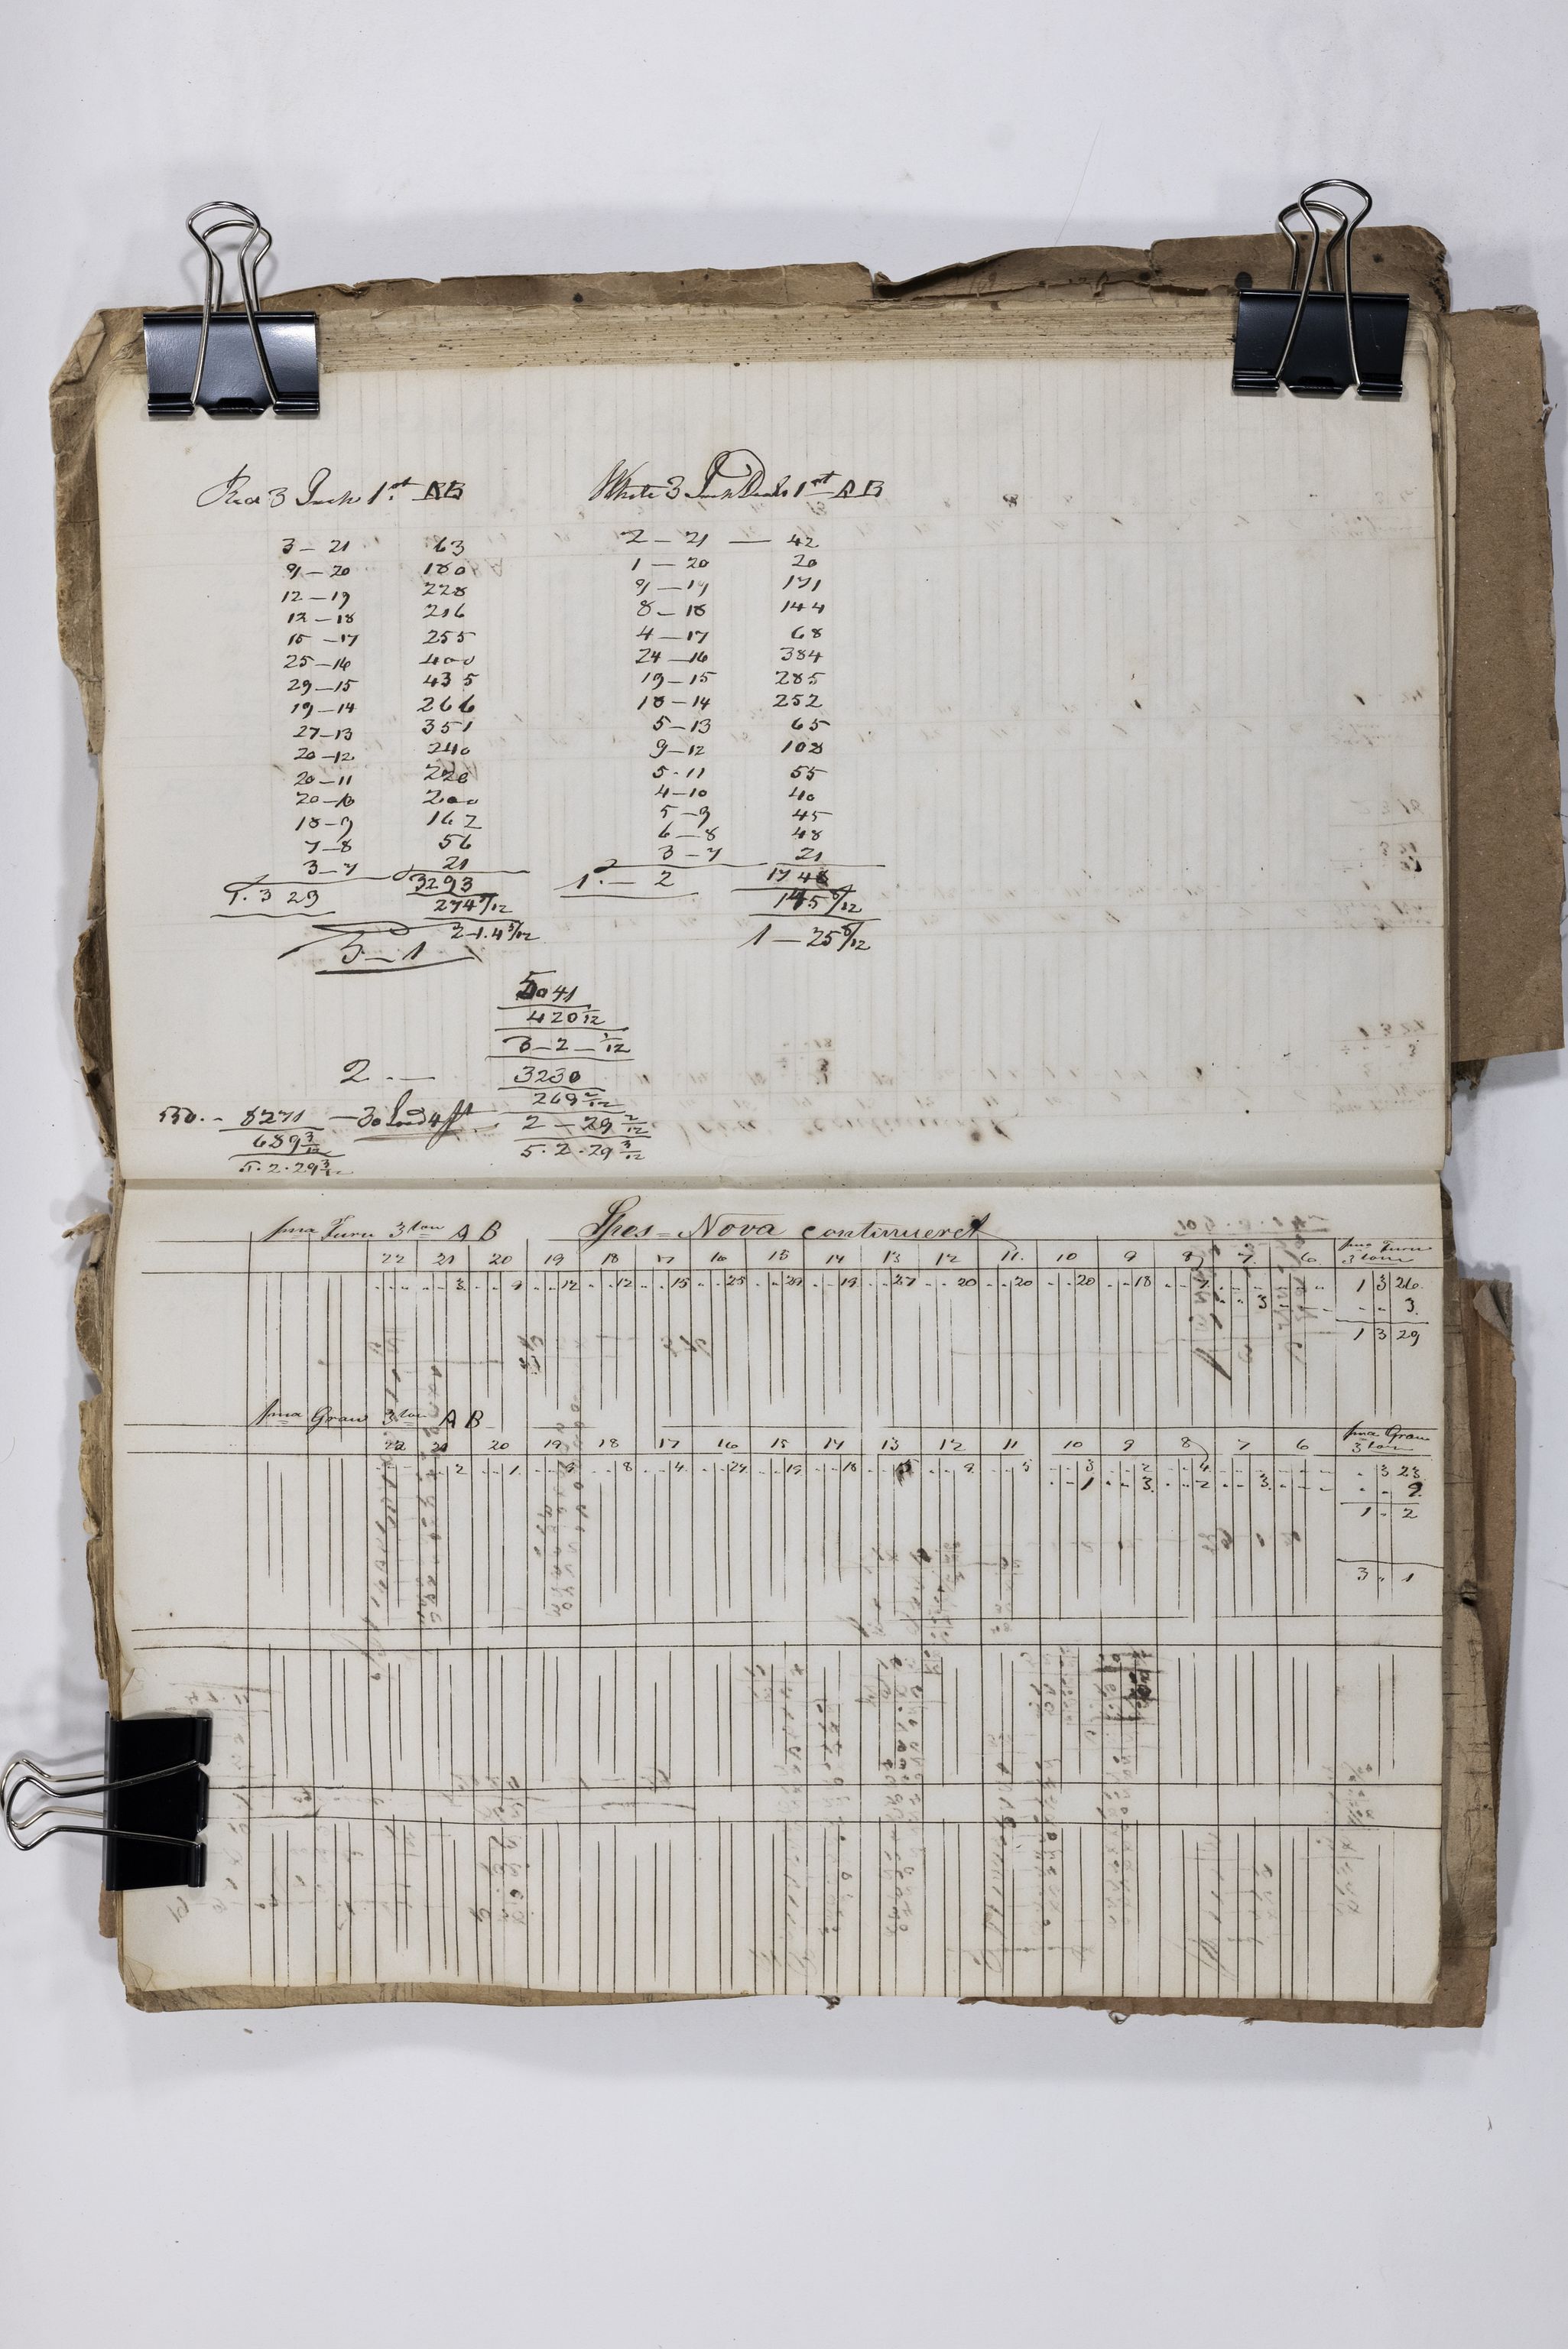 Red 3 Inch 1st AB
3 – 21 63
9 – 20 180
12 – 19 228
12 – 18 216
15 – 17 255
25 – 16 400
29 – 15 435
19 – 14 266
27 – 13 351
20 – 12 240
20 – 11 220
20 – 10 200
18 – 9 162
7 – 8 56
3 – 7 21
1. 3 29 3293
274 5/12
2 – 1. 4 5/12
3 – 1
White 3 Inch Deals 1st AB
2 – 21 — 42
1 – 20 20
9 – 19 171
8 – 18 144
4 – 17 68
24 – 16 384
19 – 15 285
18 – 14 252
5 – 13 65
9 – 12 108
5 – 11 55
4 – 10 40
5 – 9 45
6 – 8 48
3 – 7 21
1. – 2 1748
145 8/12
1 – 25 8/12
5041
420 1/12
3 – 2 – 1/12
2 . — 3230
269 2/12
550. – 8271 – 30 Load 4 ft 2 – 29 2/12
689 3/12 5. 2. 29 3/12
5. 2. 29 3/12
pma Furu 3 tom AB Spes = Nova continueret
22 21 20 19 18 17 16 15 14 13 12 11. 10 9 8 7 6 pma Furu 3 tom
3. 9 12 12 15 25 29 19 27 20 20 20 18 7 1 3 26.
3 3.
1 3 29
pma Gran 3 tom AB
22 21 20 19 18 17 16 15 14 13 12 11 10 9 8 7 6 pma Gran 3 tom
2 1. 9 8 4. 24. 19 18 5 9. 5 3 2 4 3 23.
1 3. 2 3. 9.
1 - 2
3 . 1